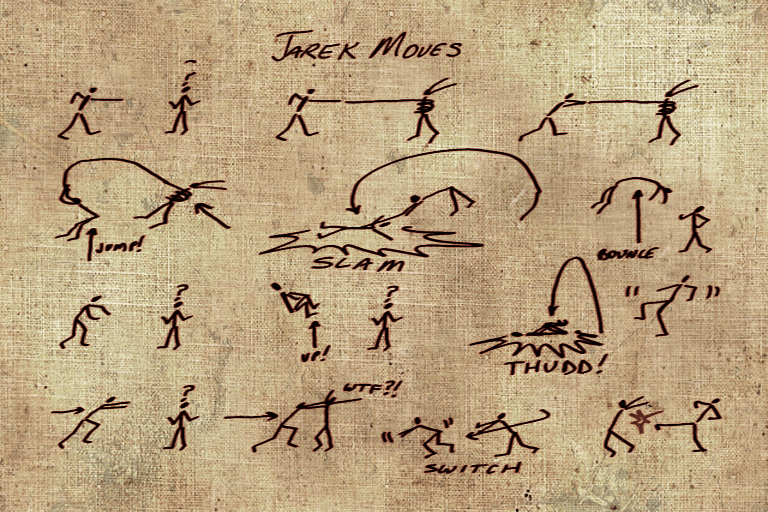 JAREK MOVES
?
JUMP!
SLAM
BOUNCE
?
UP!
?
THUDD!
?
WTF?!
SWITCH